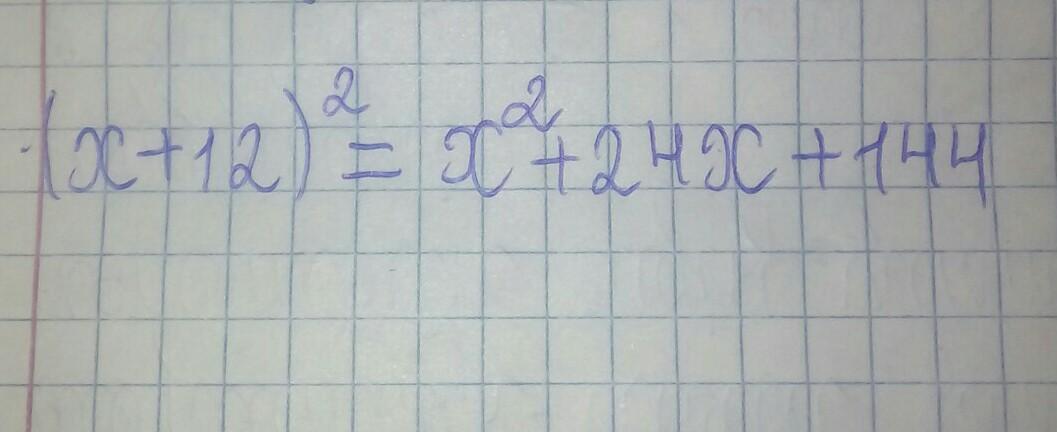 (x+12)² = x²+24x+144